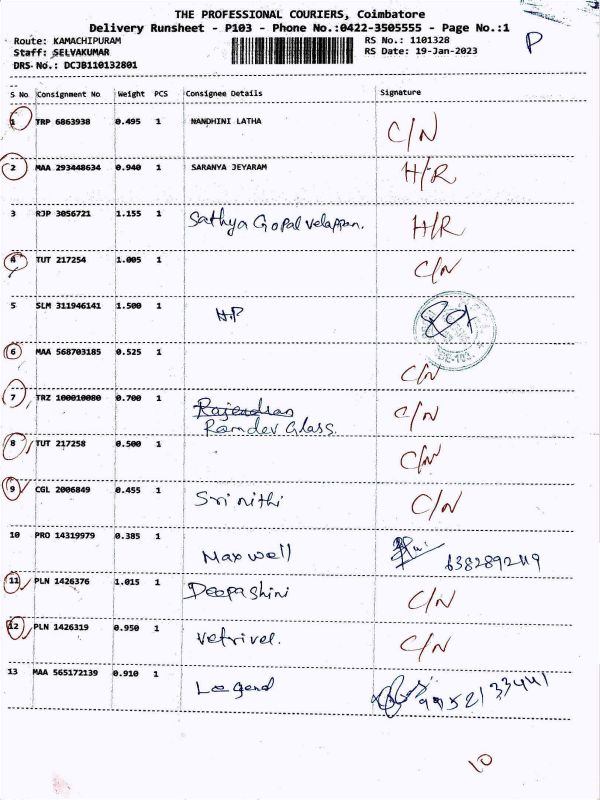 THE PROFESSIONAL COURIERS, Coimbatore
Delivery Runsheet - P103 - Phone No.:0422-3505555 - Page No.:1
Route: KAMACHIPURAM RS No.: 1101328
Staff: SELVAKUMAR RS Date: 19-Jan-2023
DRS No.: DCJB110132801
P
S No Consignment No Weight PCS Consignee Details Signature
1 TRP 6863938 0.495 1 NANDHINI LATHA C/N
2 MAA 293448634 0.940 1 SARANYA JEYARAM H/R
3 RJP 3056721 1.155 1 Sathya Gopal Velappan. H/R
4 TUT 217254 1.005 1 C/N
5 SLM 311946141 1.500 1 H.P
6 MAA 568703185 0.525 1 C/N
7 TRZ 100010080 0.700 1 Rajendran C/N
Ramdev Glass.
8 TUT 217258 0.500 1 C/N
9 CGL 2006849 0.455 1 Sri nithi C/N
10 PRO 14319979 0.385 1 Maxwell
11 PLN 1426376 1.015 1 Deepashini C/N
12 PLN 1426319 0.950 1 Vetrivel. C/N
13 MAA 565172139 0.910 1 Legend
10